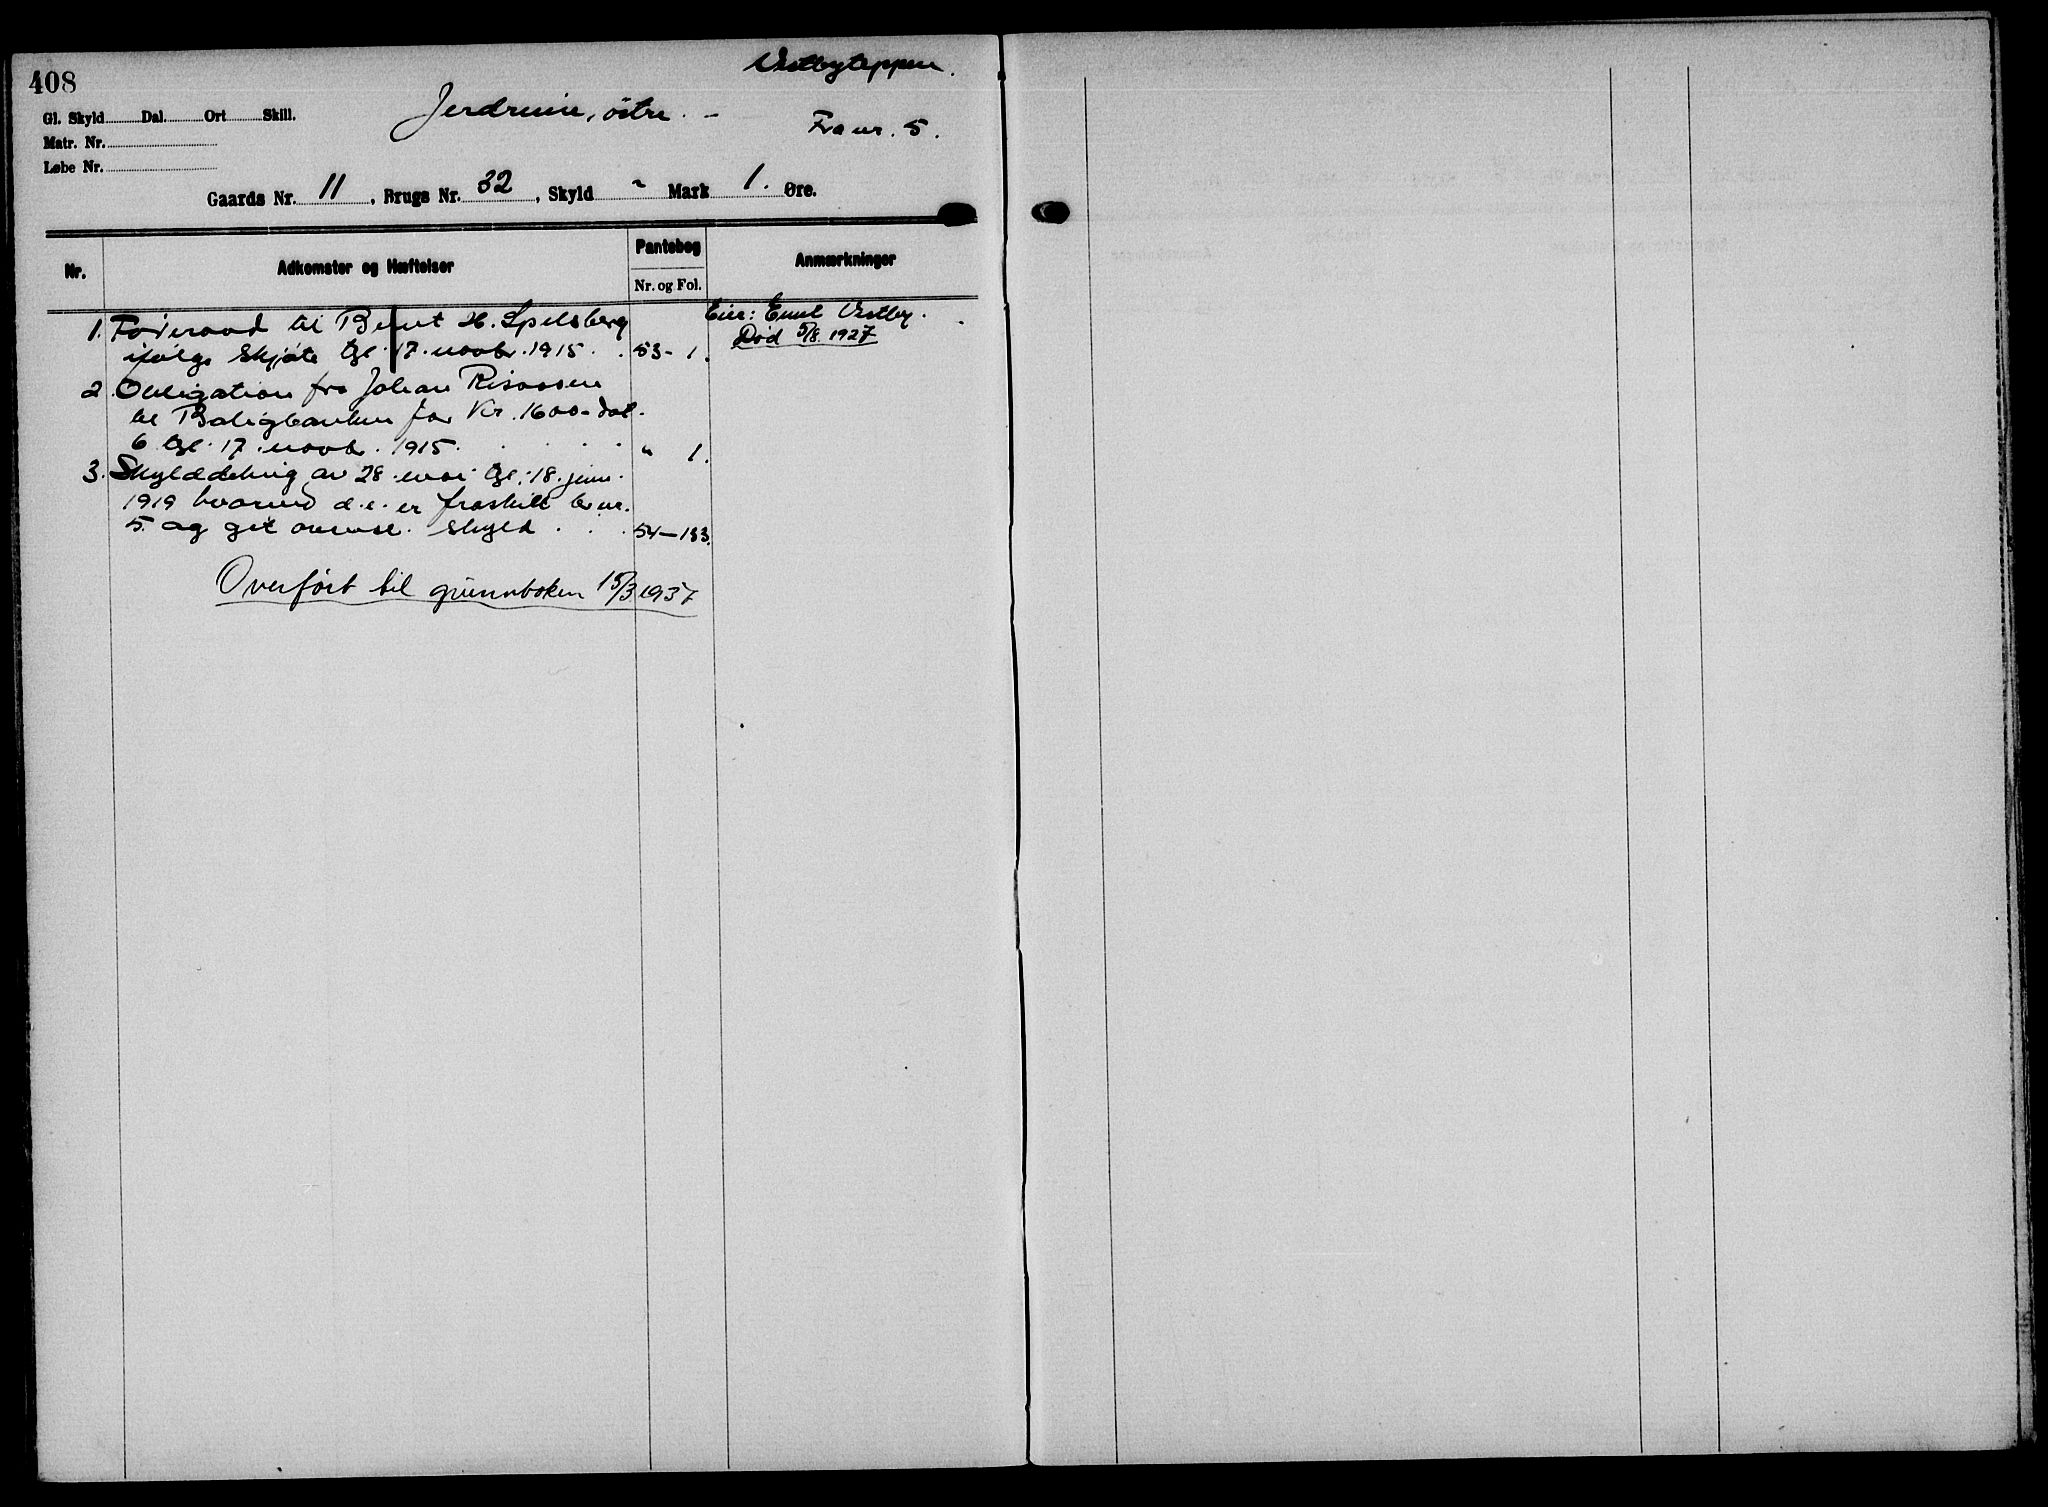 408
Vestbyteppen.
Gl. Skyld Dal. Ort Skill.
Jerdrum, østre. -
Fra nr. 5.
Matr. Nr.
Løbe Nr.
Gaards Nr. 11, Brugs Nr. 32, Skyld " Mark 1. Øre.
Nr. Adkomster og Hæftelser Pantebog Anmærkninger
Nr. og Fol.
1. Föderaad til Bernt H. Spelsberg Eier: Emil Vestby.
ifölge skjöte tgl. 17. novbr. 1915. . 53 - 1. Död 5/8 1927
2. Obligation fra Johan Risaasen
til Boligbanken for Kr. 1600 - dat.
6 tgl. 17. novbr. 1915. . . . . " 1.
3. Skylddeling av 28. mai tgl. 18. juni
1919 hvorved d.e. er fraskilt br.nr.
5. og git skyld . . . 54 - 183.
Overført til grunnboken 15/3 1937